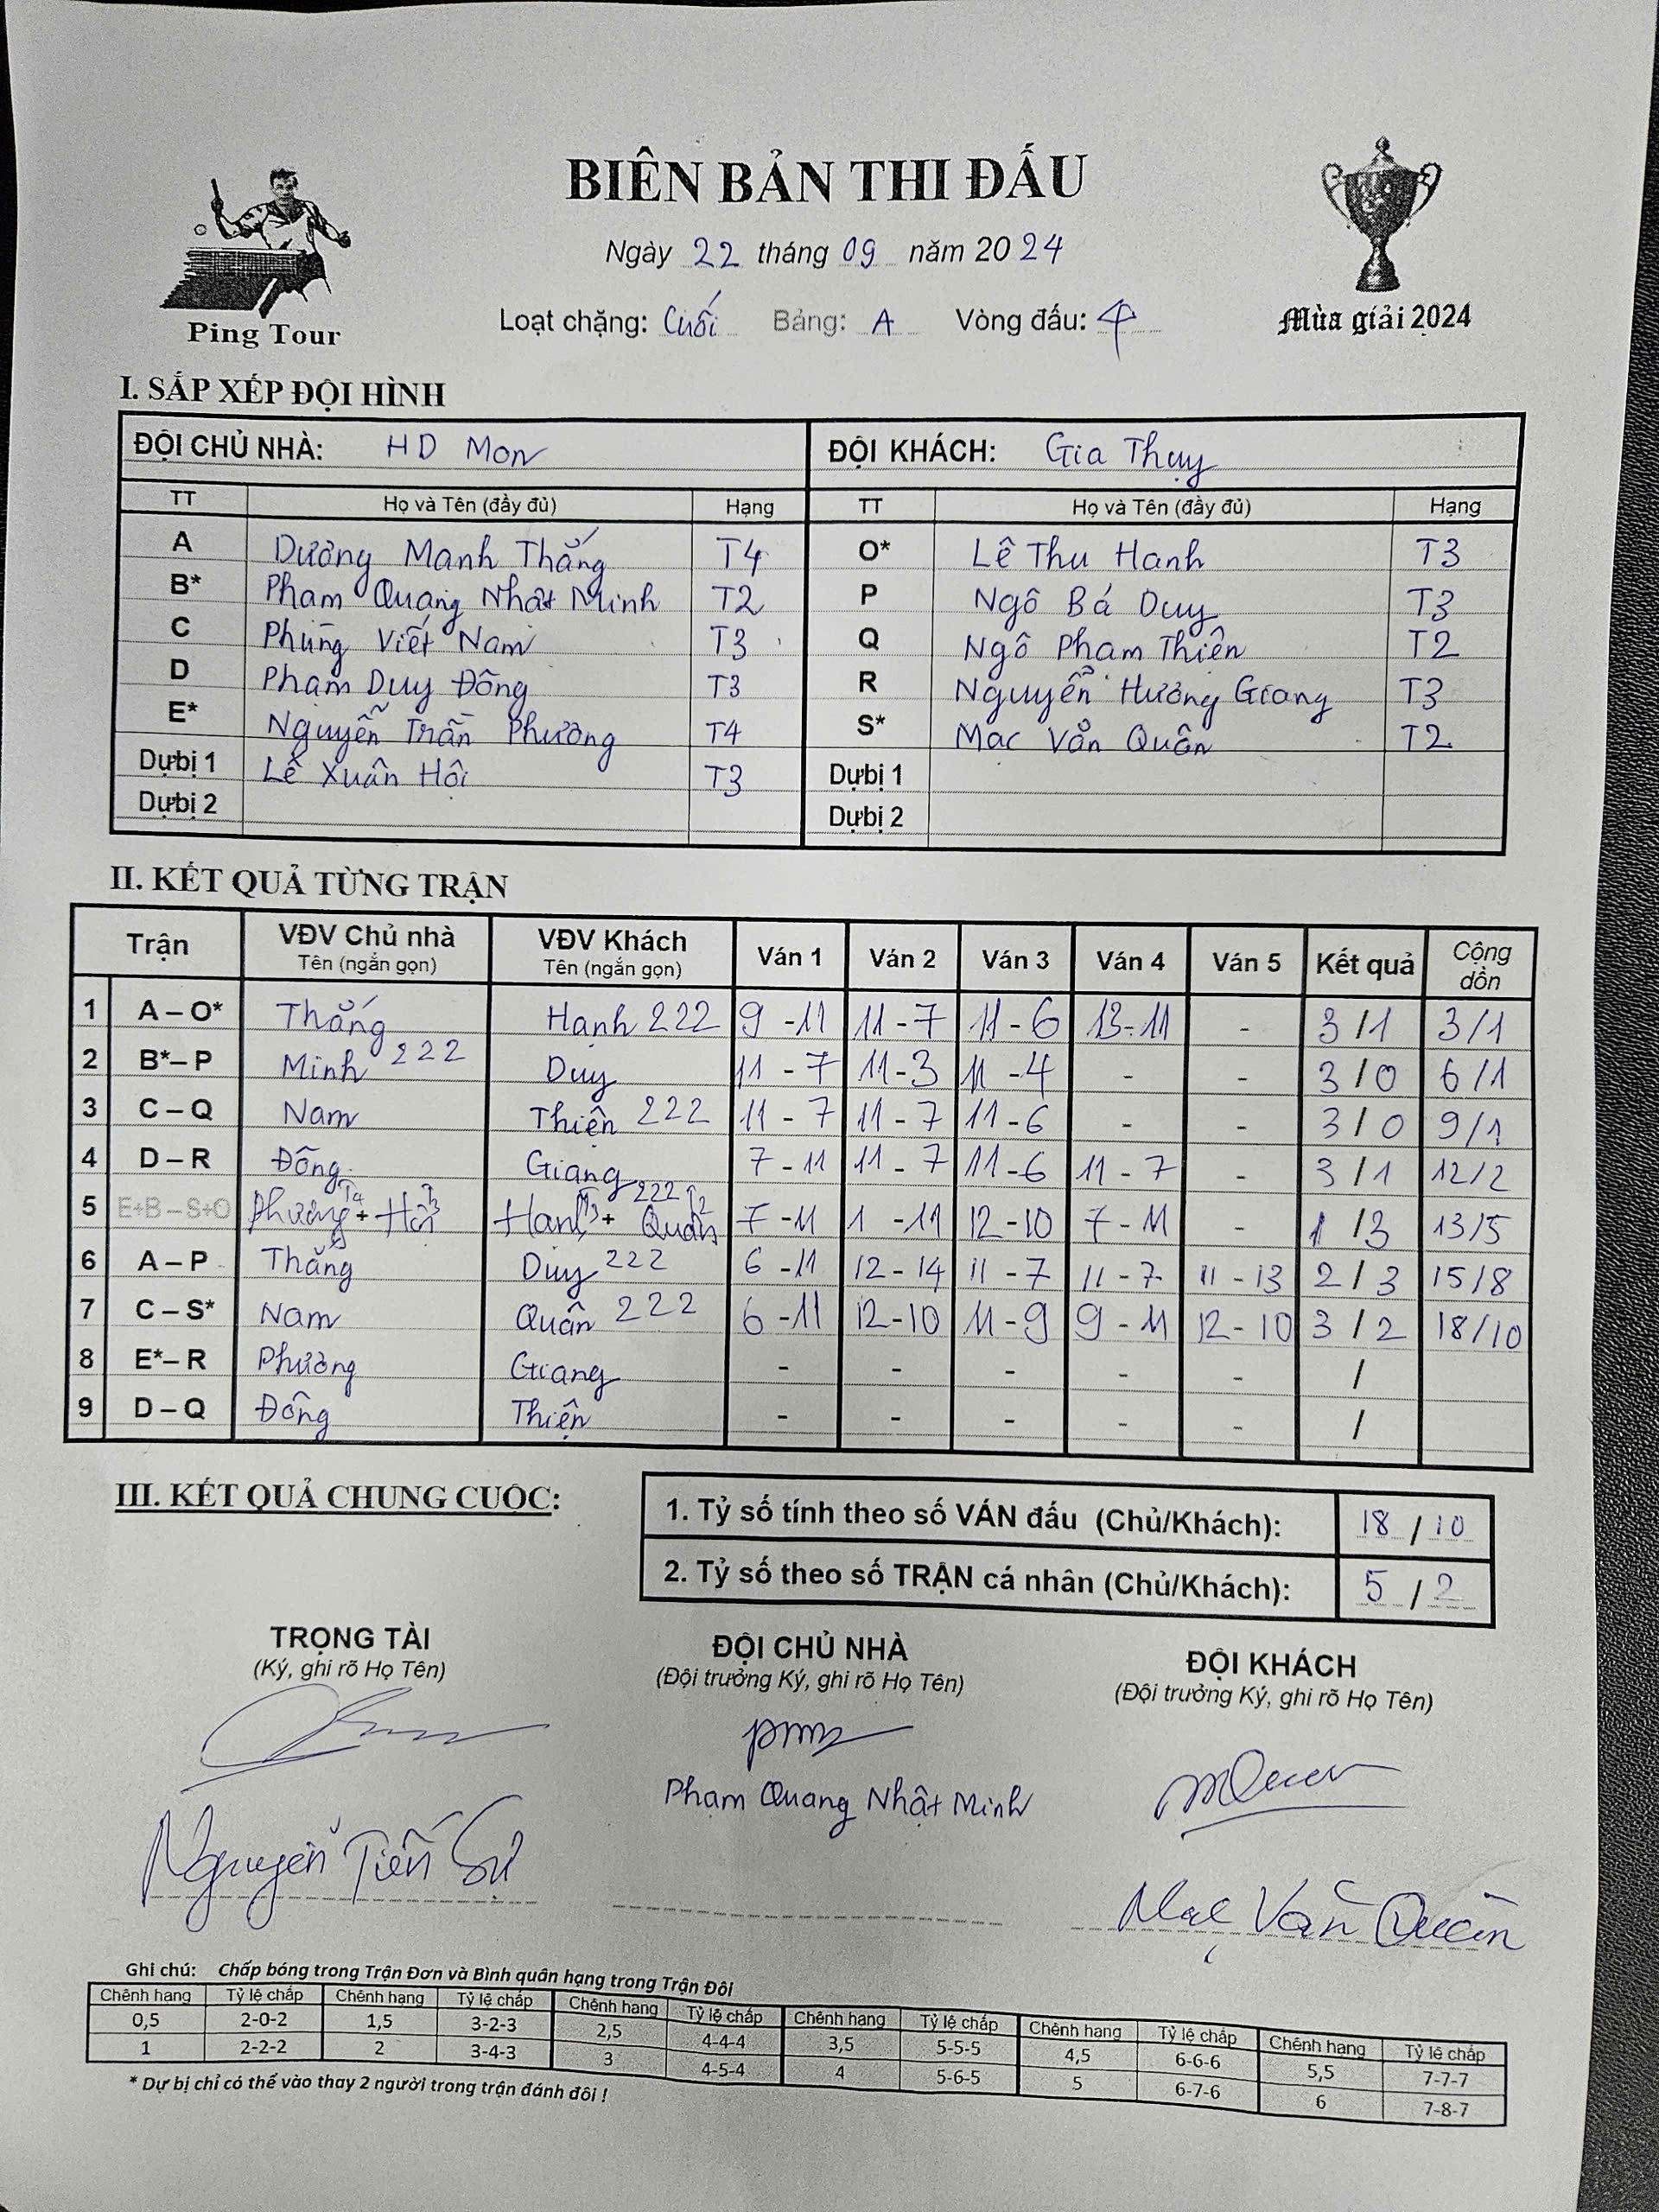 BIÊN BẢN THI ĐẤU
Ngày 22 tháng 09 năm 2024
Ping Tour
Loạt chặng: Cuối Bảng: A Vòng đấu: 4
Mùa giải 2024
I. SẮP XẾP ĐỘI HÌNH
ĐỘI CHỦ NHÀ: HD Mon ĐỘI KHÁCH: Gia Thụy
TT Họ và Tên (đầy đủ) Hạng TT Họ và Tên (đầy đủ) Hạng
A Dương Mạnh Thắng T4 O* Lê Thu Hạnh T3
B* Phạm Quang Nhật Minh T2 P Ngô Bá Duy T3
C Phùng Viết Nam T3 Q Ngô Phạm Thiện T2
D Phạm Duy Đông T3 R Nguyễn Hương Giang T3
E* Nguyễn Trần Phương T4 S* Mạc Văn Quân T2
Dự bị 1 Lê Xuân Hội T3 Dự bị 1
Dự bị 2 Dự bị 2
II. KẾT QUẢ TỪNG TRẬN
Trận VĐV Chủ nhà Tên (ngắn gọn) VĐV Khách Tên (ngắn gọn) Ván 1 Ván 2 Ván 3 Ván 4 Ván 5 Kết quả Cộng dồn
1 A – O* Thắng Hạnh 222 9 - 11 11 - 7 11 - 6 13 - 11 - 3 / 1 3/1
2 B* – P Minh 222 Duy 11 - 7 11 - 3 11 - 4 - - 3 / 0 6/1
3 C – Q Nam Thiện 222 11 - 7 11 - 7 11 - 6 - - 3 / 0 9/1
4 D – R Đông Giang 7 - 11 11 - 7 11 - 6 11 - 7 - 3 / 1 12/2
5 E+B – S+O Phương T4 + Hội T3 Hạnh T3 + Quân T2 222 7 - 11 1 - 11 12 - 10 7 - 11 - 1 / 3 13/5
6 A – P Thắng Duy 222 6 - 11 12 - 14 11 - 7 11 - 7 11 - 13 2 / 3 15/8
7 C – S* Nam Quân 222 6 - 11 12 - 10 11 - 9 9 - 11 12 - 10 3 / 2 18/10
8 E* – R Phương Giang - - - - - /
9 D – Q Đông Thiện - - - - - /
III. KẾT QUẢ CHUNG CUỘC:
1. Tỷ số tính theo số VÁN đấu (Chủ/Khách): 18 / 10
2. Tỷ số theo số TRẬN cá nhân (Chủ/Khách): 5 / 2
TRỌNG TÀI ĐỘI CHỦ NHÀ ĐỘI KHÁCH
(Ký, ghi rõ Họ Tên) (Đội trưởng Ký, ghi rõ Họ Tên) (Đội trưởng Ký, ghi rõ Họ Tên)
Phạm Quang Nhật Minh
Nguyễn Tiến Sử Mạc Văn Quân
Ghi chú: Chấp bóng trong Trận Đơn và Bình quân hạng trong Trận Đôi
Chênh hạng Tỷ lệ chấp Chênh hạng Tỷ lệ chấp Chênh hạng Tỷ lệ chấp Chênh hạng Tỷ lệ chấp Chênh hạng Tỷ lệ chấp Chênh hạng Tỷ lệ chấp
0,5 2-0-2 1,5 3-2-3 2,5 4-4-4 3,5 5-5-5 4,5 6-6-6 5,5 7-7-7
1 2-2-2 2 3-4-3 3 4-5-4 4 5-6-5 5 6-7-6 6 7-8-7
* Dự bị chỉ có thể vào thay 2 người trong trận đánh đôi !